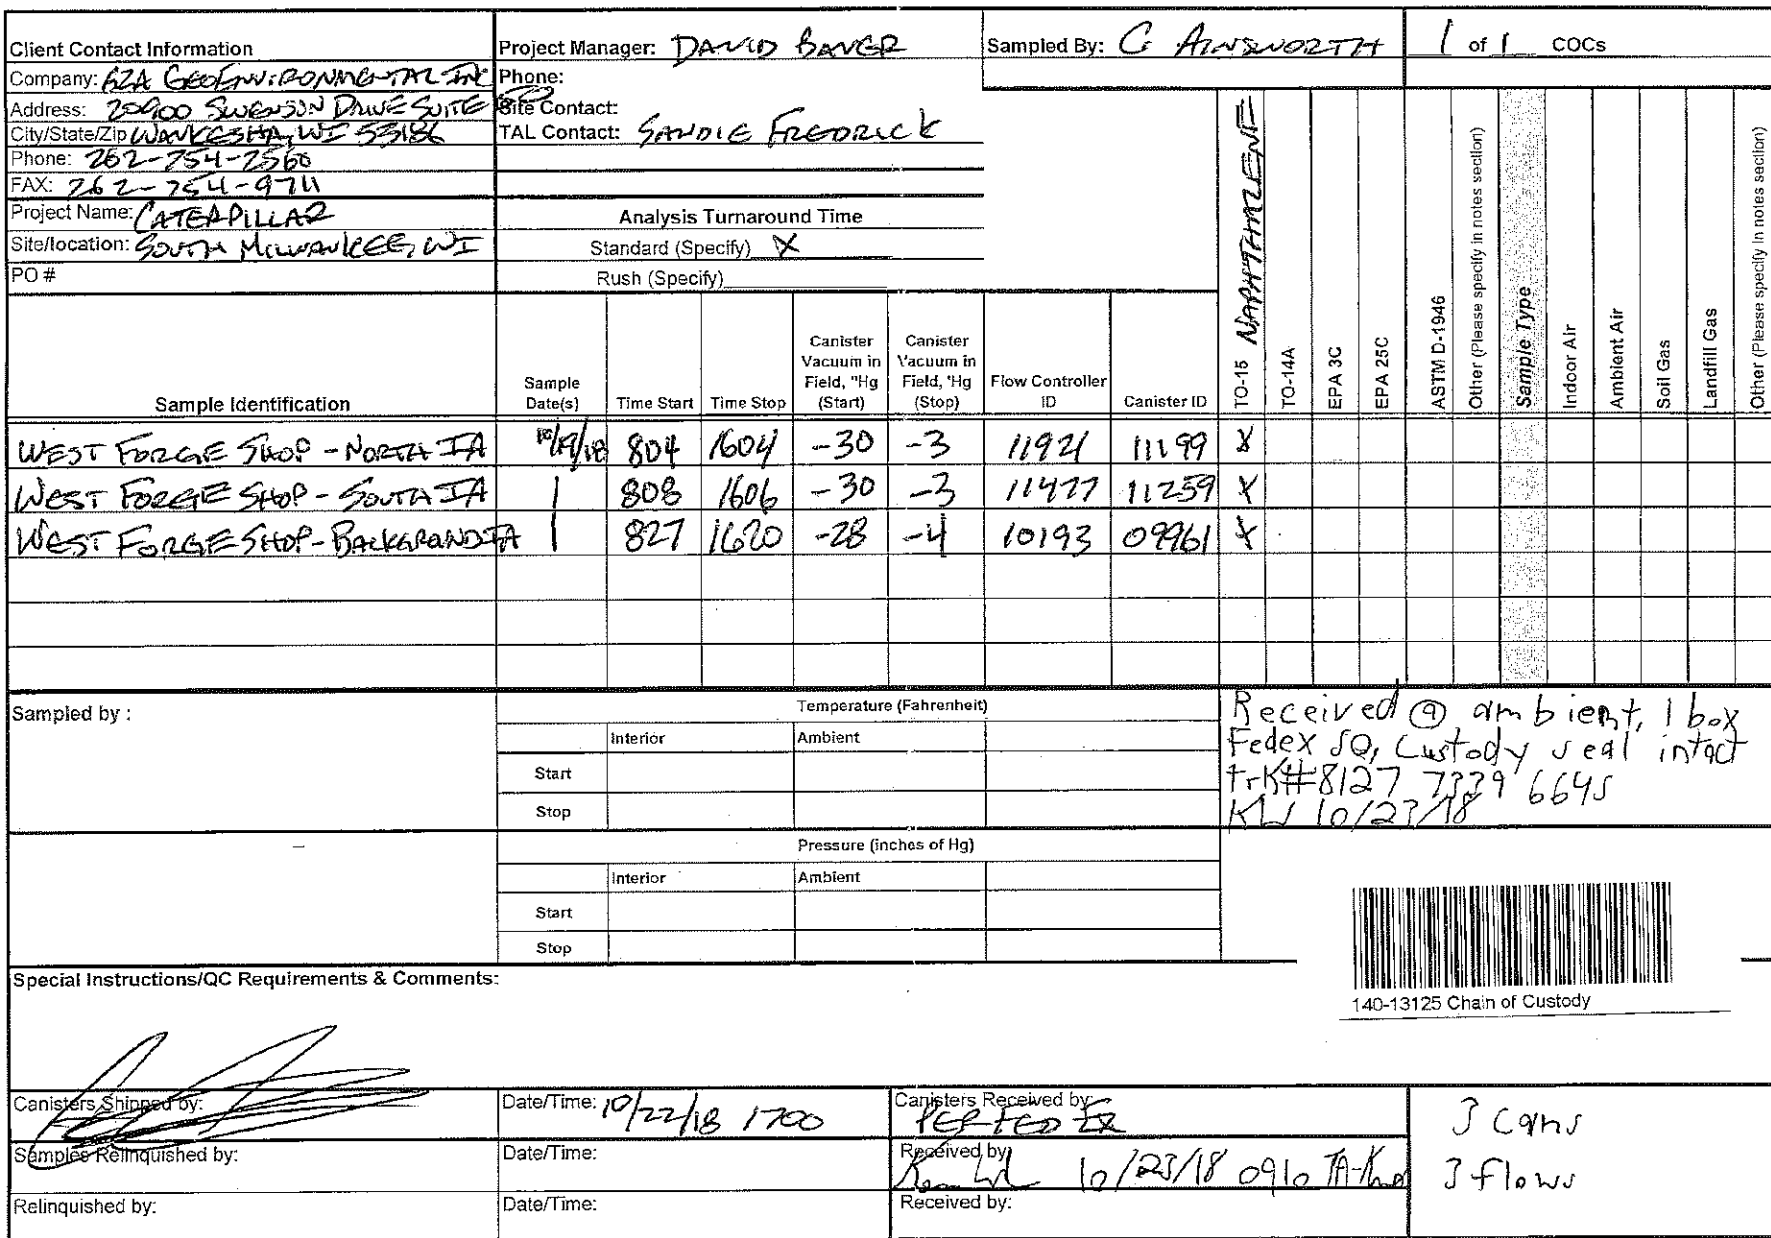 Client Contact Information
Company: GZA GEOENVIRONMENTAL INC
Address: 20900 SWENSON DRIVE SUITE
City/State/Zip WAUKESHA, WI 53186
Phone: 262-754-2560
FAX: 262-754-9711
Project Name: CATERPILLAR
Site/location: SOUTH MILWAUKEE, WI
PO #
Project Manager: DAVID
Phone:
Site Contact:
TAL Contact: SANDIE FREDRICK
Analysis Turnaround Time
Standard (Specify) X
Rush (Specify)
Sampled By: C AINSWORTH
1 of 1 COCs
Sample Identification
Sample Date(s)
Time Start
Time Stop
Canister Vacuum in Field, "Hg (Start)
Canister Vacuum in Field, 'Hg (Stop)
Flow Controller ID
Canister ID
TO-15 NAPHTHALENE
TO-14A
EPA 3C
EPA 25C
ASTM D-1946
Other (Please specify in notes section)
Sample Type
Indoor Air
Ambient Air
Soil Gas
Landfill Gas
Other (Please specify in notes section)
WEST FORGE SHOP - NORTH IA 10/19/18 804 1604 -30 -3 11921 11199 X
WEST FORGE SHOP - SOUTH IA | 808 1606 -30 -3 11477 11259 X
WEST FORGE SHOP - BACKGROUND IA | 827 1620 -28 -4 10193 09961 X
Sampled by :
Temperature (Fahrenheit)
Interior Ambient
Start
Stop
Received @ ambient, 1 box
Fedex SO, Custody seal intact
trk# 8127 7339 6645
KW 10/23/18
Pressure (inches of Hg)
Interior Ambient
Start
Stop
140-13125 Chain of Custody
Special Instructions/QC Requirements & Comments:
Canisters Shipped by:
Date/Time: 10/22/18 1700
Canisters Received by:
PER FED EX
3 cans
Samples Relinquished by:
Date/Time:
Received by:
10/23/18 0910
3 flows
Relinquished by:
Date/Time:
Received by: